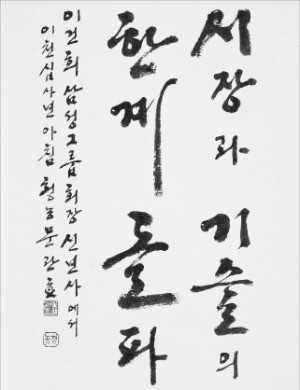 시장과 기술의
한계 돌파
이건희 삼성그룹 회장 신년사에서
이천십사년 아침 청농 문관효